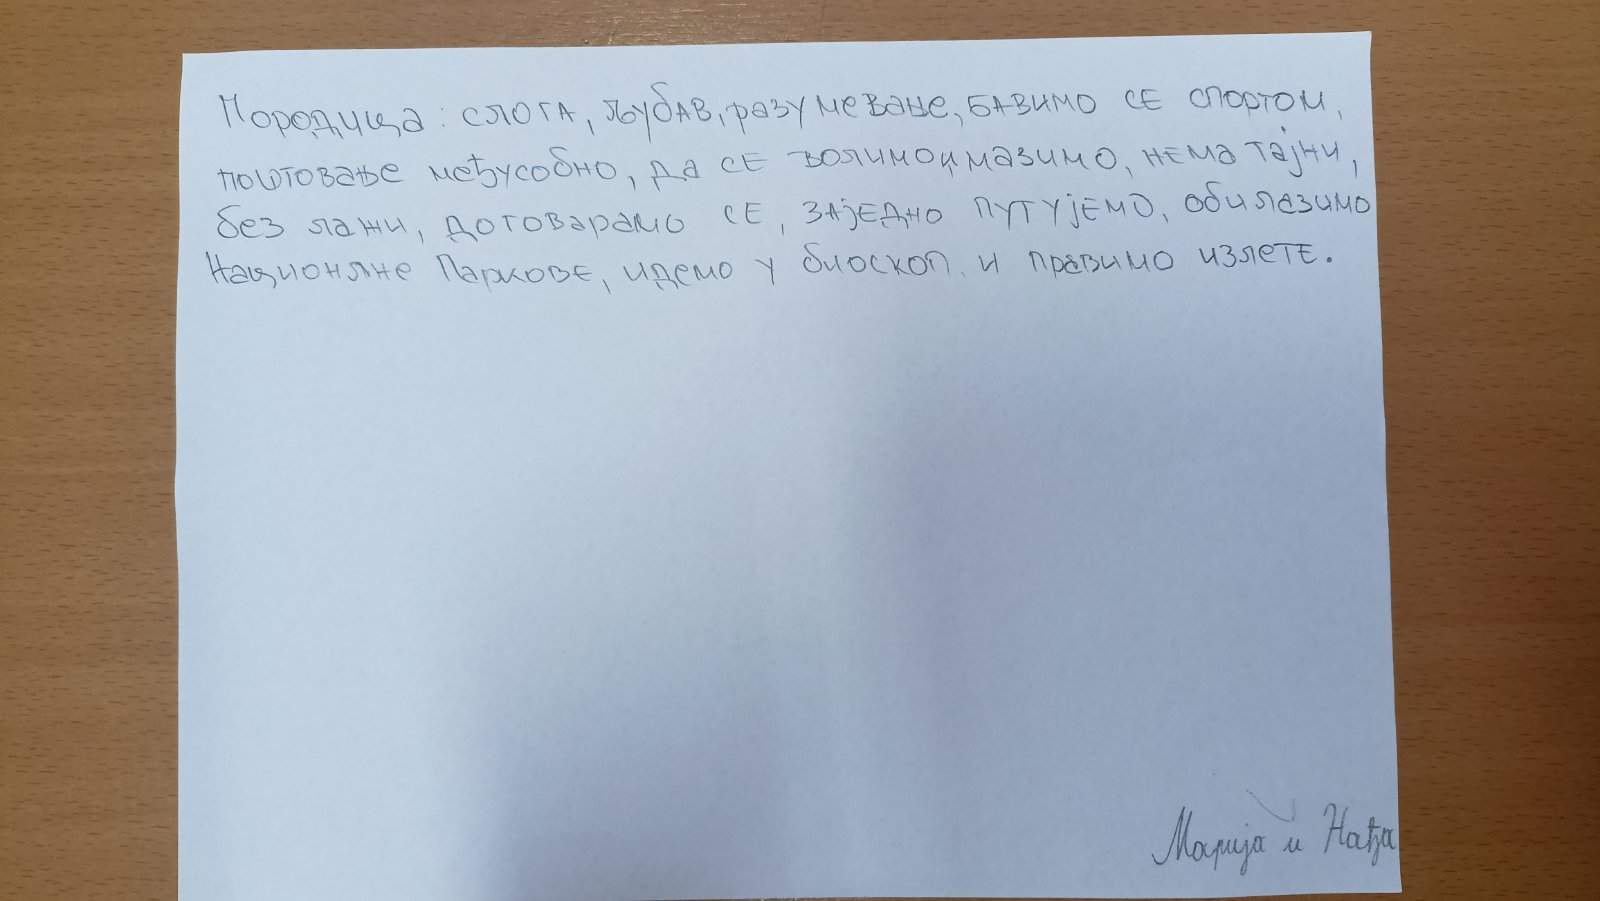 Породица: слога, љубав, разумевање, бавимо се спортом,
поштовање међусобно, да се волимо и мазимо, нема тајни,
без лажи, договарамо се, заједно путујемо, обилазимо
Националне Паркове, идемо у биоскоп и правимо излете.
Марија и Нађа